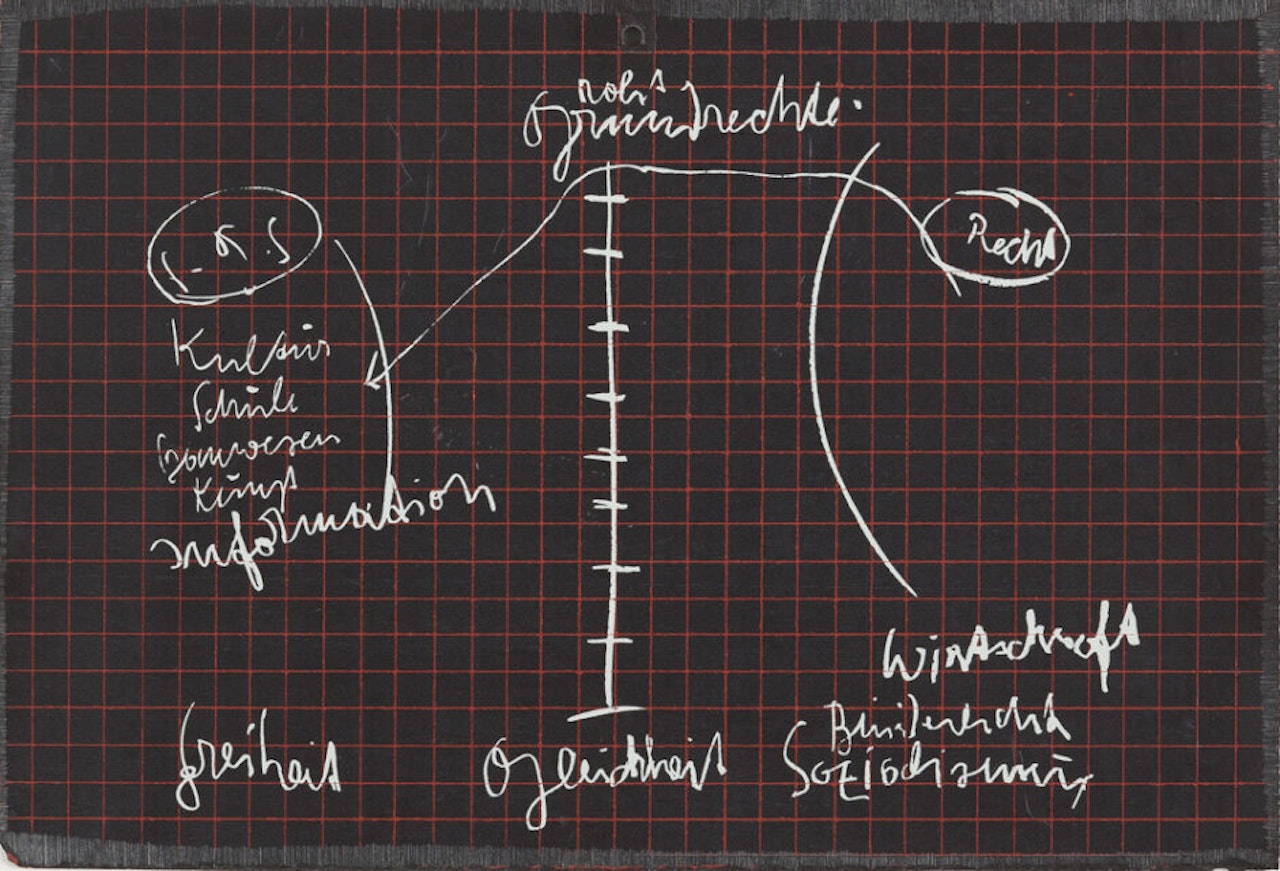 Grundrechte.
Recht
Kultur
Schule
Kunst
Information
Wirtschaft
Freiheit
Gleichheit
Brüderlichk
Sozialismus